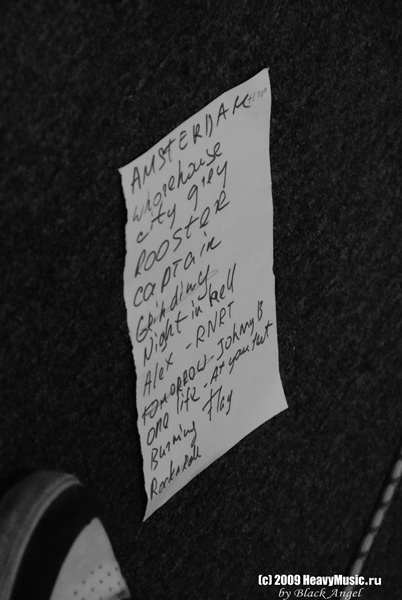 AMSTERDAM
whorehouse
city grey
ROOSTER
CAPTAIN
Grinding
Night in hell
Alex - RNRT
TOMORROW - Johnny B
ONE life - At your
Burning Flag
Rocknroll
(c) 2009 HeavyMusic.ru
by Black Angel